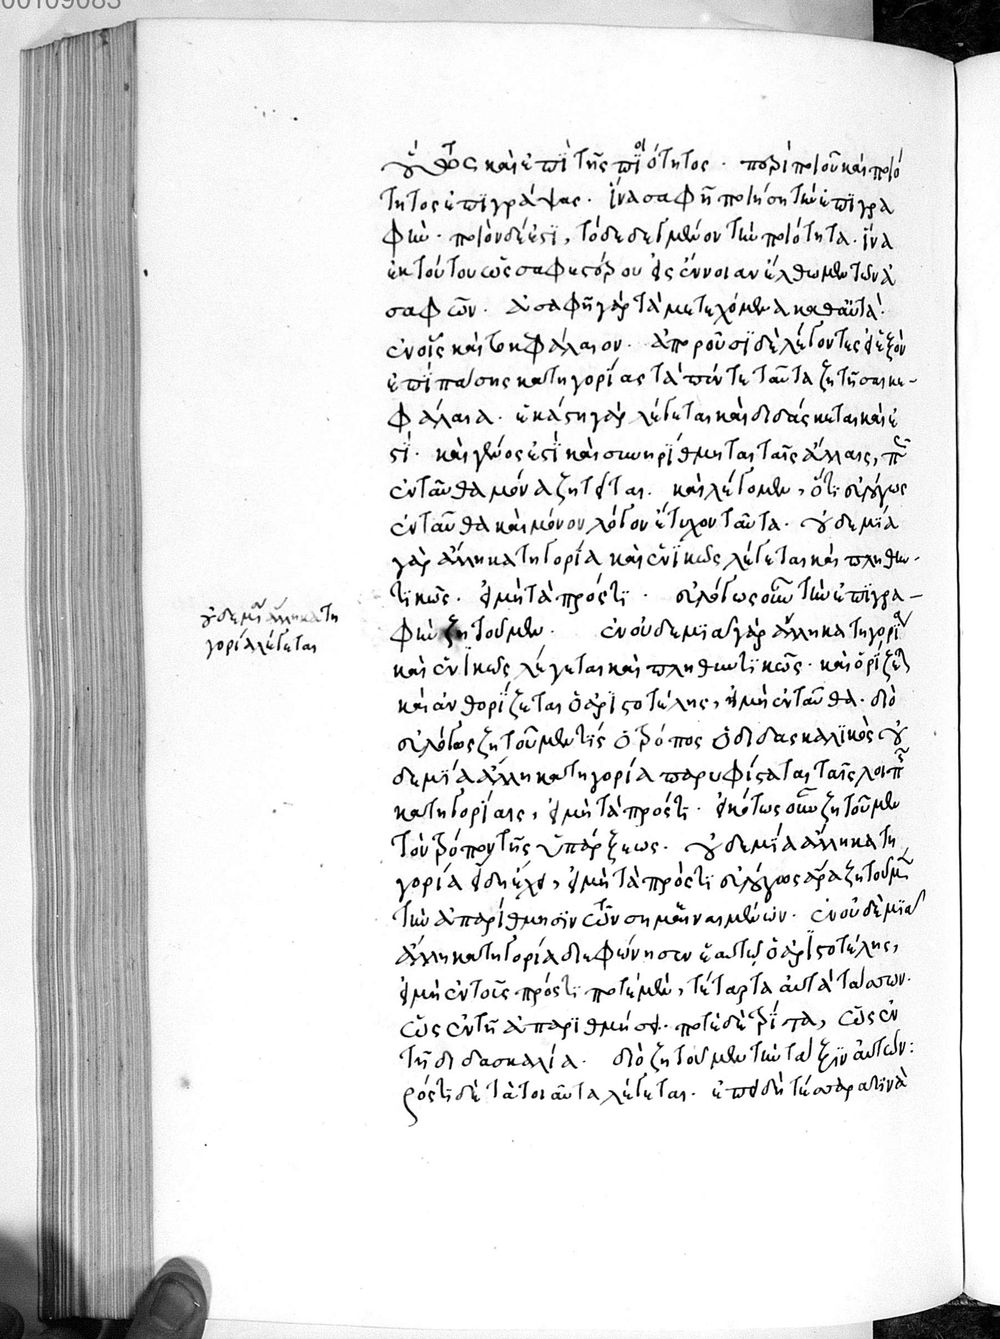 00109083
οὕτως καὶ ἐπὶ τῆς ποιότητος · περὶ ποιοῦ καὶ ποιό
τητος ἐπιγράψας · ἵνα σαφῆ ποιήσῃ τὴν ἐπιγρα
φὴν · ποιὸν δέ ἐστι, τὸ δεδεγμένον τὴν ποιότητα · ἵνα
ἐκ τούτου ὡς σαφεστέρου εἰς ἔννοιαν ἔλθωμεν τῶν ἀ
σαφῶν · ἀσαφῆ γὰρ τὰ μετεχόμενα καθ' αὑτά ·
ἐν οἷς καὶ τὸ κεφάλαιον · ἀποροῦσι δὲ λέγοντες ὡς ἐξὸν
ἐπὶ πάσης κατηγορίας τὰ πέντε ταῦτα ζητῆσαι κε-
φάλαια · ἑκάστη γὰρ λέγεται καὶ διδάσκεται καὶ ἔ
στι · καὶ γένος ἐστὶ καὶ συνηρίθμηται ταῖς ἄλλαις,
ἐνταῦθα μόνα ζητεῖται · καὶ λέγομεν, ὅτι εὐλόγως
ἐνταῦθα καὶ μόνον λόγον ἔτυχον ταῦτα · οὐδεμία
γὰρ ἄλλη κατηγορία καὶ ἑνικῶς λέγεται καὶ πληθυν-
τικῶς · εἰ μὴ τὰ πρός τι · εὐλόγως οὖν τὴν ἐπιγρα-
φὴν ζητοῦμεν · ἐν οὐδεμιᾷ γὰρ ἄλλῃ κατηγορίᾳ
καὶ ἑνικῶς λέγεται καὶ πληθυντικῶς · καὶ ὁρίζεται
καὶ ἀνθορίζεται ὁ ἀριστοτέλης, εἰ μὴ ἐνταῦθα · διὸ
εὐλόγως ζητοῦμεν τίς ὁ τρόπος ὁ διδασκαλικὸς οὐ
δεμία ἄλλη κατηγορία παρυφίσταται ταῖς λοιπαῖς
κατηγορίαις, εἰ μὴ τὰ πρός τι · εἰκότως οὖν ζητοῦμεν
τὸν τρόπον τῆς ὑπάρξεως · οὐδεμία ἄλλη κατη
γορία εἴδη ἔχει, εἰ μὴ τὰ πρός τι εὐλόγως ἄρα ζητοῦμεν
τὴν ἀπαρίθμησιν τῶν σημαινομένων · ἐν οὐδεμιᾷ
ἄλλῃ κατηγορίᾳ διεφώνησεν ἑαυτῷ ὁ ἀριστοτέλης,
εἰ μὴ ἐν τοῖς πρός τι ποτὲ μὲν, τέταρτα αὐτὰ τάσσων ·
ὡς ἐν τῇ ἀπαριθμήσει · ποτὲ δὲ τρίτα, ὡς ἐν
τῇ διδασκαλίᾳ · διὸ ζητοῦμεν τὴν τάξιν αὐτῶν :
ρός τι δὲ τὰ τοιαῦτα λέγεται · ἐπειδὴ τέσσαρα τινὰ
οὐδεμία ἄλλη κατη
γορία λέγεται